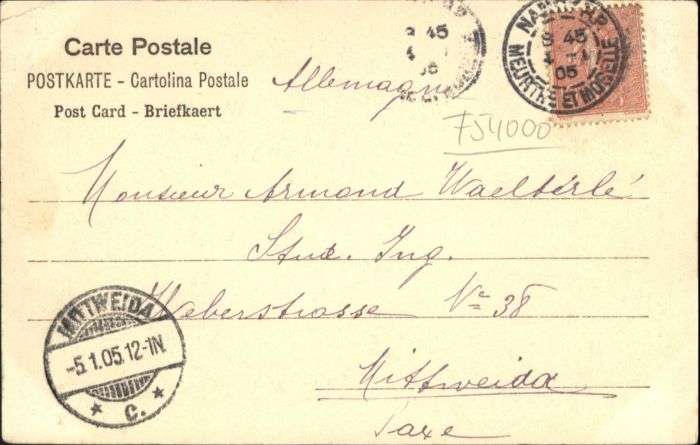 Carte Postale
POSTKARTE - Cartolina Postale
Post Card - Briefkaert
Allemagne
45
05
NANCY R.P
3 45
4 -1
05
MEURTHE ET MOSELLE
754000
Monsieur Armond Waelterlé
Stud. Ing.
Weberstrasse No 38
Mittweida
Saxe
MITTWEIDA
-5.1.05.12-1N.
* C. *